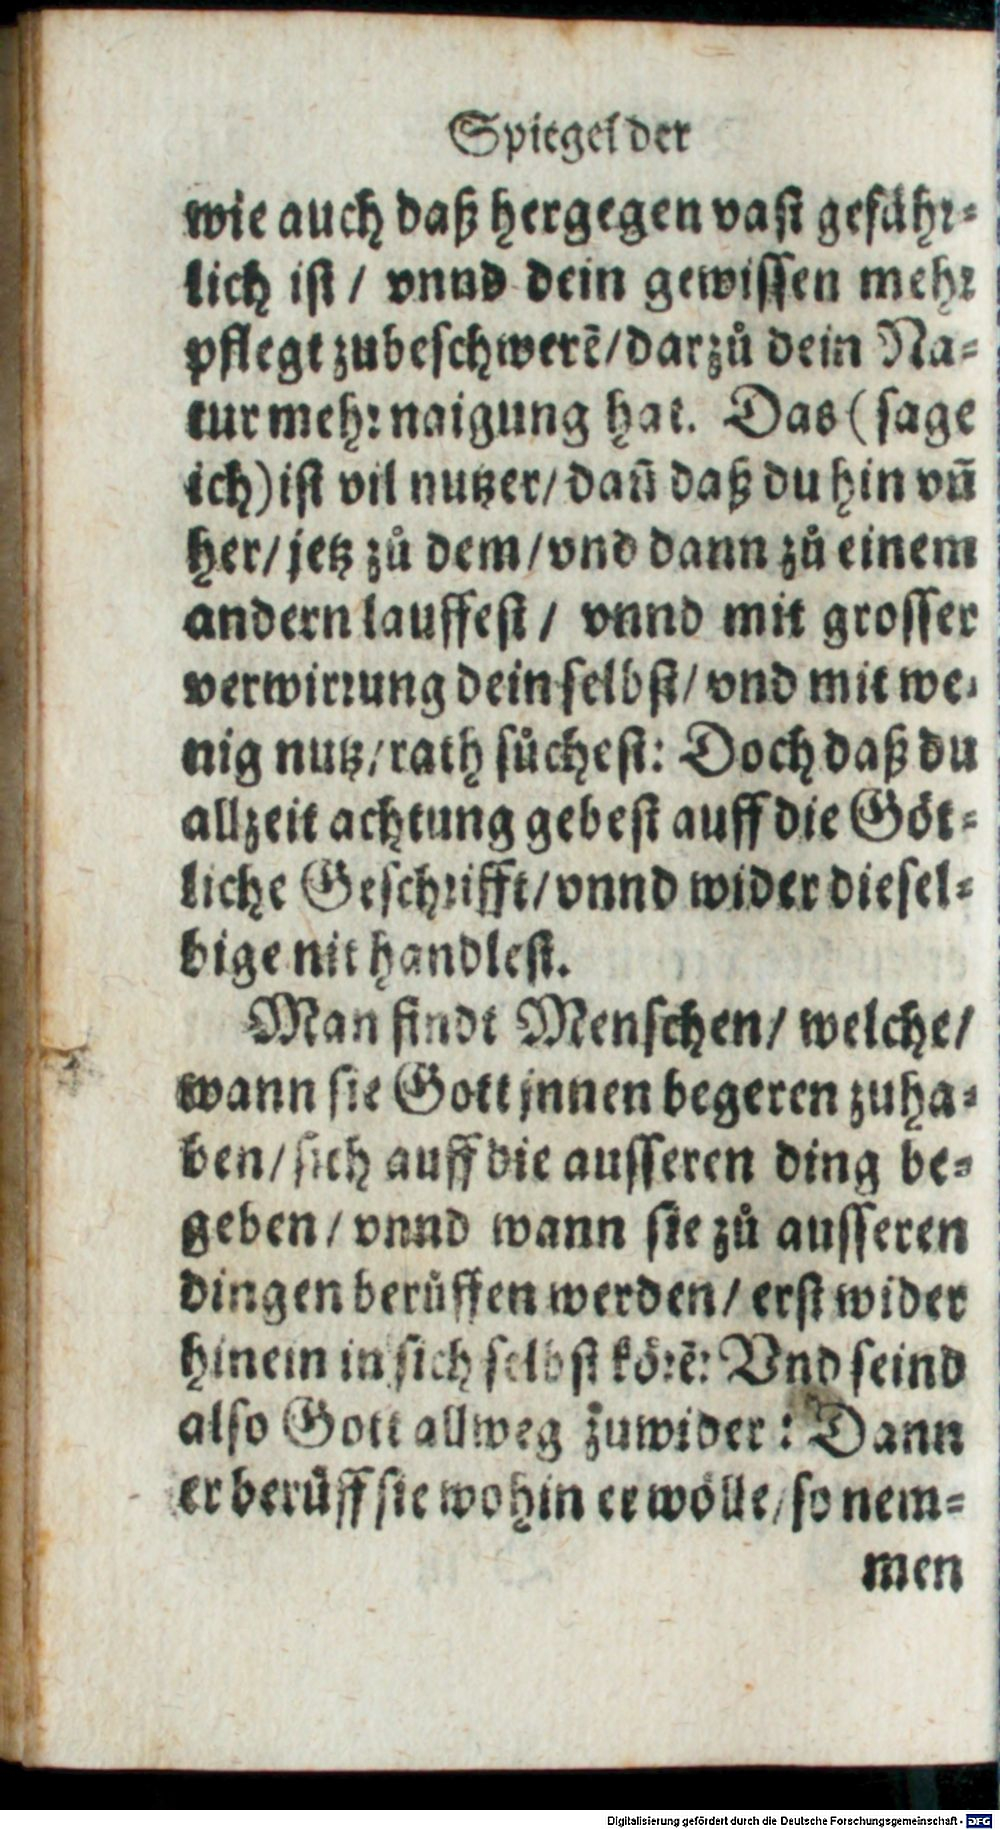 Spiegel der
wie auch daß hergegen vast gefähr-
lich ist / vnnd dein gewissen mehr
pflegt zubeschwerẽ/darzů dein Na-
tur mehr naigung hat. Das (sage
ich) ist vil nutzer/ dañ daß du hin vñ
her/ jetz zů dem/vnd dann zů einem
andern lauffest / vnnd mit grosser
verwirrung dein selbst/ vnd mit we-
nig nutz/rath sůchest: Doch daß du
allzeit achtung gebest auff die Göt-
liche Geschrifft/vnnd wider diesel-
bige nit handlest.
Man findt Menschen/ welche/
wann sie Gott jnnen begeren zuha-
ben/sich auff die ausseren ding be-
geben/ vnnd wann sie zů ausseren
dingen berůffen werden/ erst wider
hinein in sich selbst körẽ: Vnd seind
also Gott allweg zuwider: Dann
er berůff sie wohin er wölle/so nem-
men
Digitalisierung gefördert durch die Deutsche Forschungsgemeinschaft - DFG